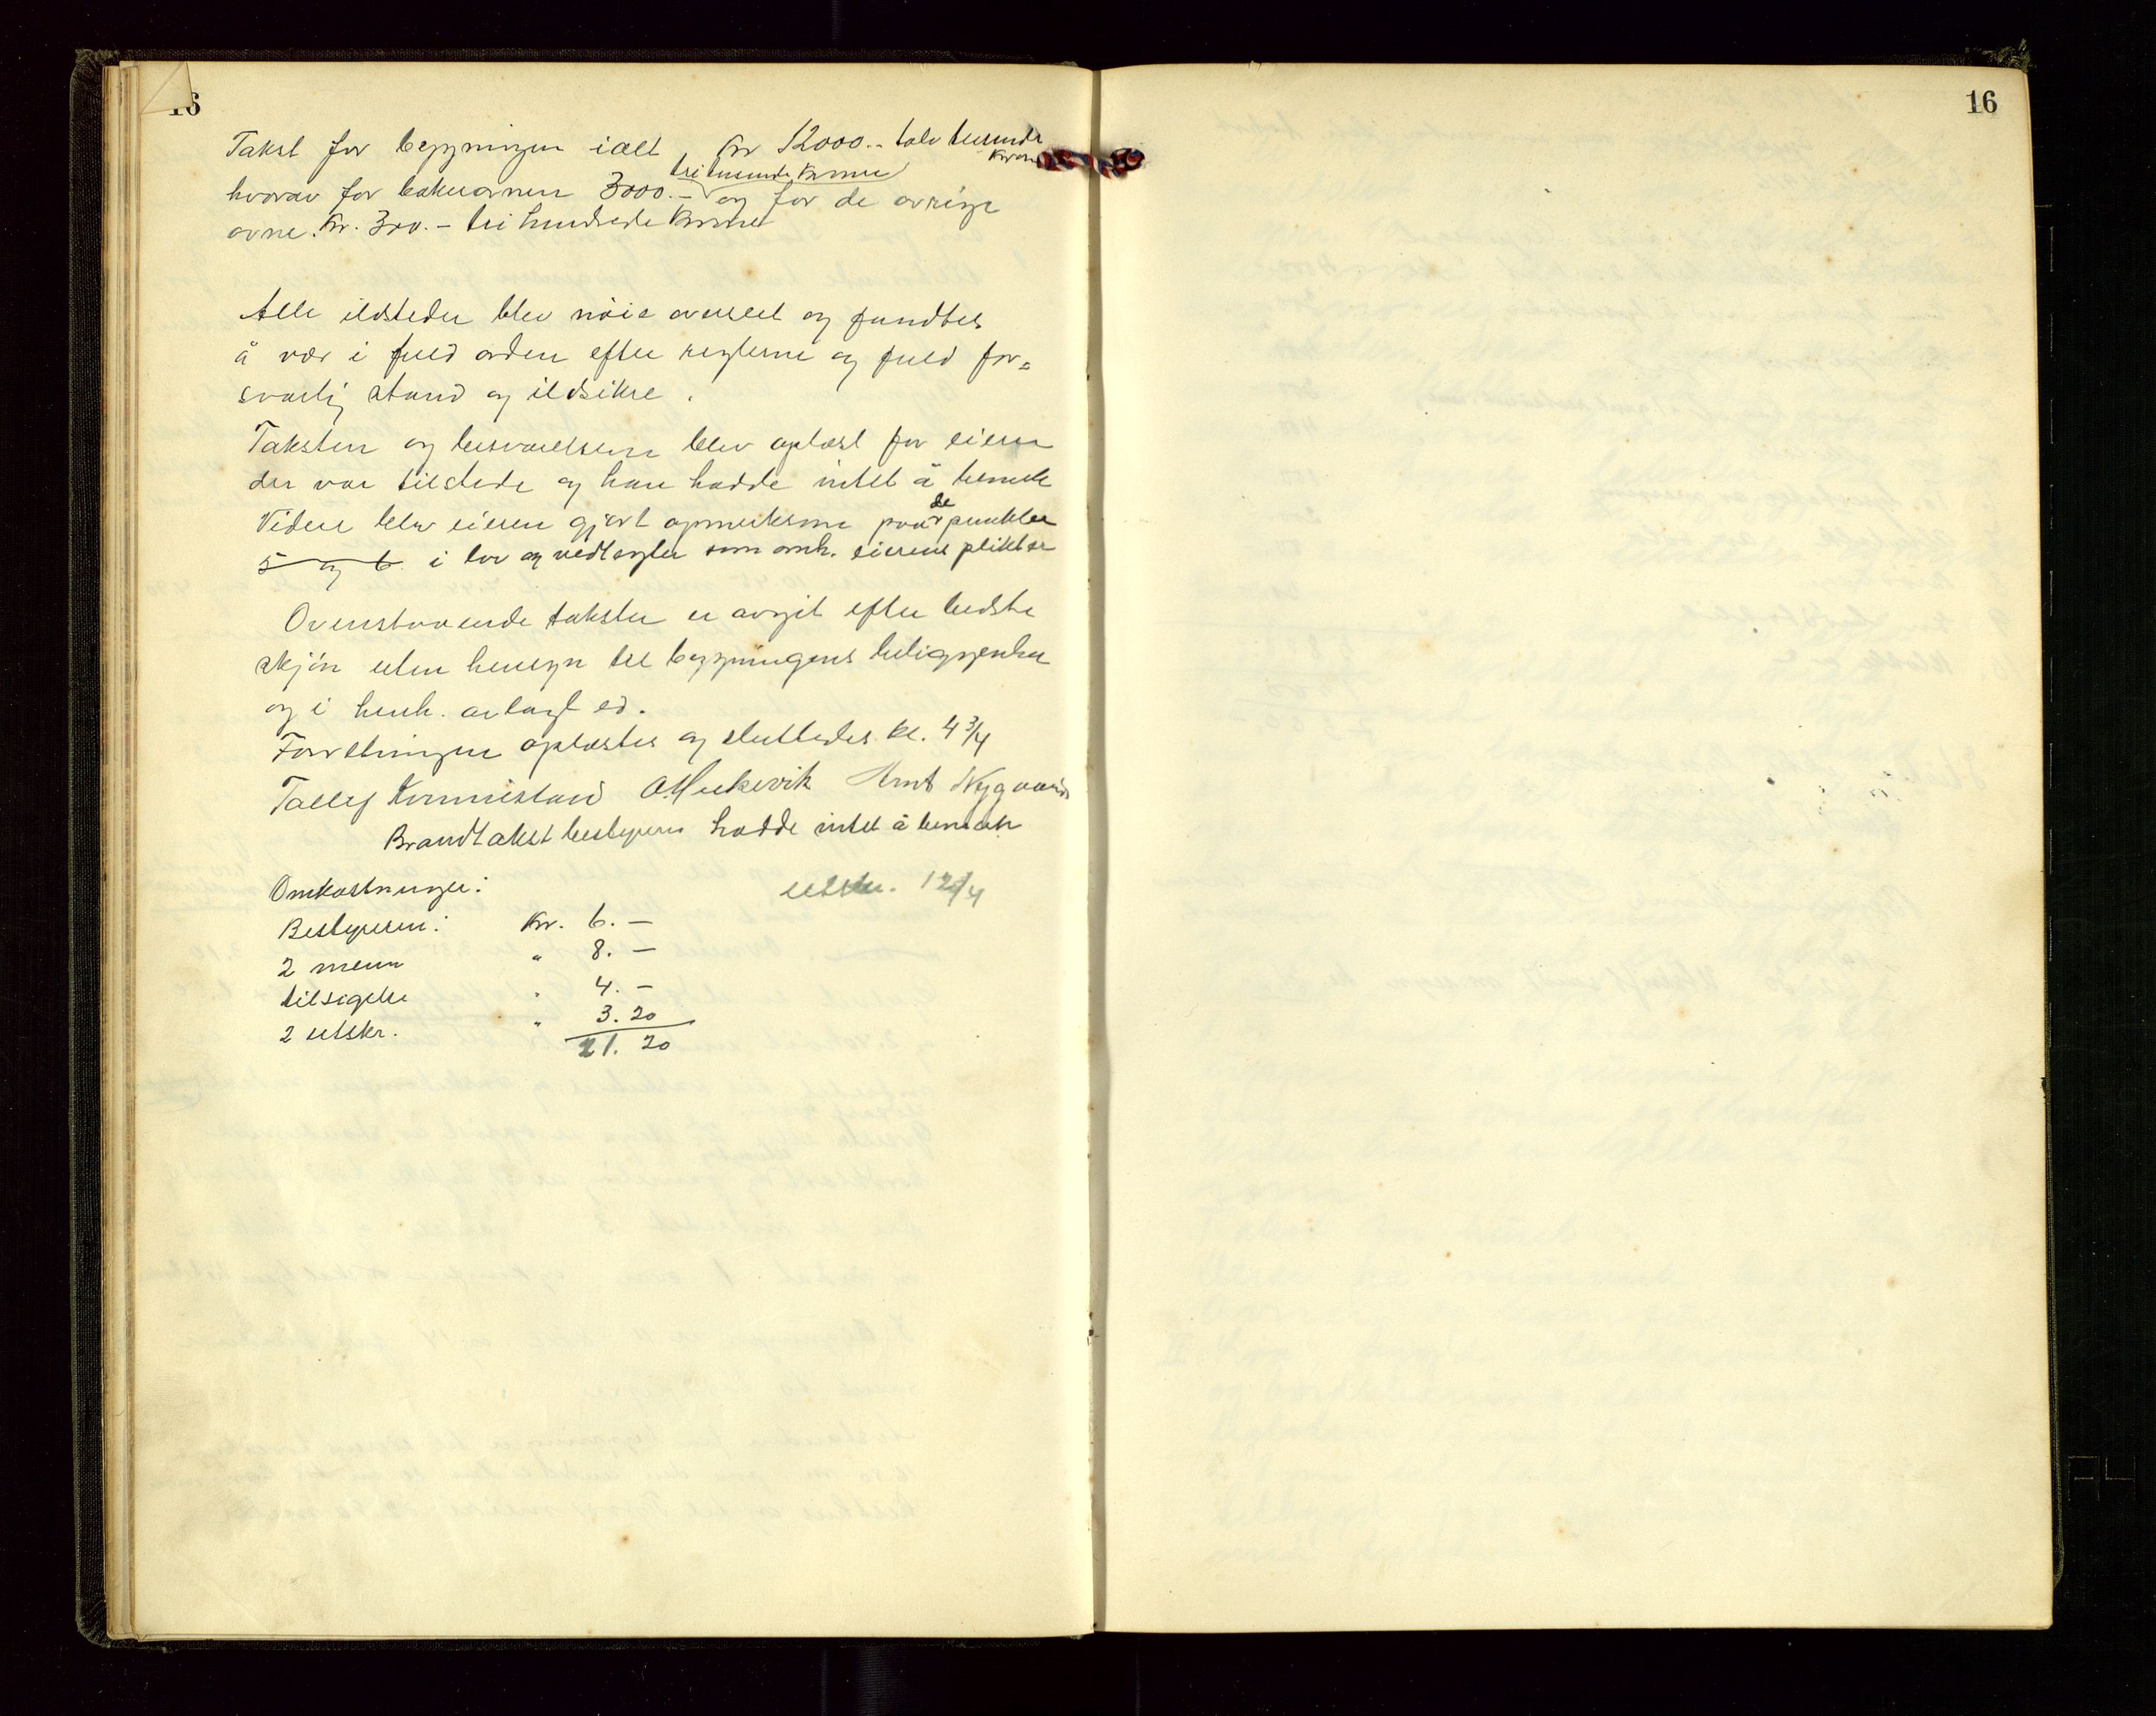 16
Takst for bygningen ialt Kr 12000.- tolv tusende kroner
hvorav for bakerovnen 3000.- tri tusende kroner og for de øvrige
ovne. Kr. 300.- tri hundrede kroner
Alle ildsteder blev nöie overseet og fundtes
å vær i fuld orden efter reglerne og fuld for=
svarlig stand og ildsikre.
Taksten og besvarelsene blev oplæst for eieren
der var tilstede og han hadde intet å bemerke
Videre blev eieren gjort opmerksom paa de punkter
5 og 6 i lov og vedtægter som omh. eierens plikter
Ovenstaaende takster er avgit efter bedste
skjön uten hensyn til bygningens beliggenhet
og i henh. avlagt ed.
Forretningen oplæstes og sluttedes kl. 4 3/4
Tallef Arnt Nygaard
Brandtakstbestyreren hadde intet å bemerke
Omkostninger:
utskr. 12/4
Bestyreren: Kr. 6.—
2 menn " 8.—
tilsigelse " 4.—
2 utskr. " 3.20
21.20
16